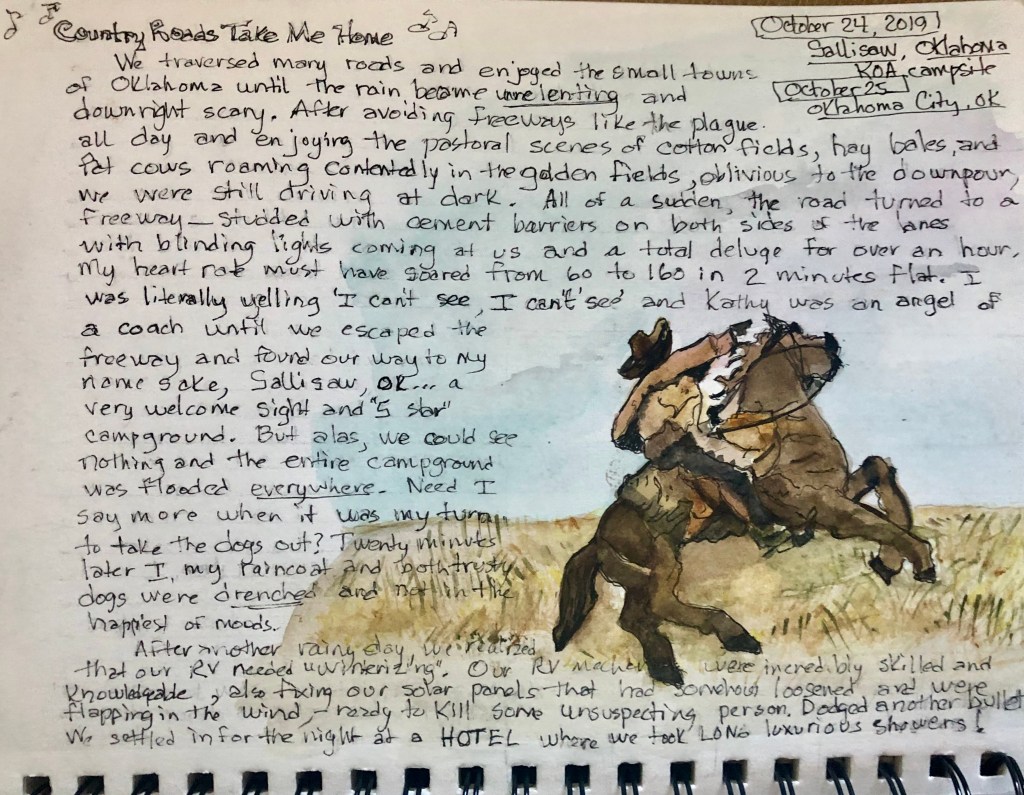 Country Roads Take Me Home
October 24, 2019
Sallisaw, Oklahoma
KOA campsite
October 25
Oklahoma City, OK
We traversed many roads and enjoyed the small towns
of Oklahoma until the rain became unrelenting and
downright scary. After avoiding freeways like the plague
all day and enjoying the pastoral scenes of cotton fields, hay bales, and
fat cows roaming contentedly in the golden fields, oblivious to the downpour,
we were still driving at dark. All of a sudden, the road turned to a
freeway — studded with cement barriers on both sides of the lanes
with blinding lights coming at us and a total deluge for over an hour.
My heart rate must have soared from 60 to 160 in 2 minutes flat. I
was literally yelling 'I can't see, I can't see' and Kathy was an angel of
a coach until we escaped the
freeway and found our way to my
name sake, Sallisaw, OK... a
very welcome sight and "5 star"
campground. But alas, we could see
nothing and the entire campground
was flooded everywhere. Need I
say more when it was my turn
to take the dogs out? Twenty minutes
later I, my raincoat and both trusty
dogs were drenched and not in the
happiest of moods.
After another rainy day we realized
that our RV needed "winterizing". Our RV were incredibly skilled and
knowledgable, also fixing our solar panels that had somehow loosened and were
flapping in the wind, — ready to kill some unsuspecting person. Dodged another bullet!
We settled in for the night at a HOTEL where we took LONG luxurious showers!